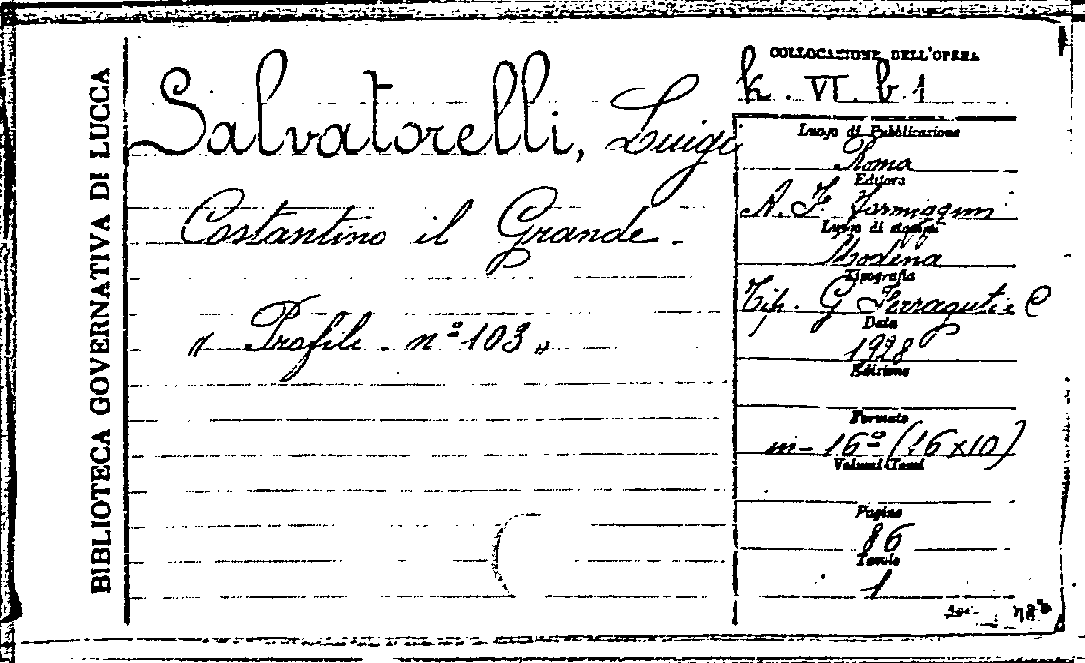 BIBLIOTECA GOVERNATIVA DI LUCCA
Salvatorelli, Luigi
Costantino il Grande.
« Profili - n° 103 »
COLLOCAZIONE DELL'OPERA
k. VI. b. 1
Luogo di Pubblicazione
Roma
Editore
A. F. Formiggini
Luogo di stampa
Modena
Tipografia
Tip. G Ferraguti e C
Data
1928
Edizione
Formato
in-16° (16x10)
Volumi (Tomi
Pagine
86
Tavole
1